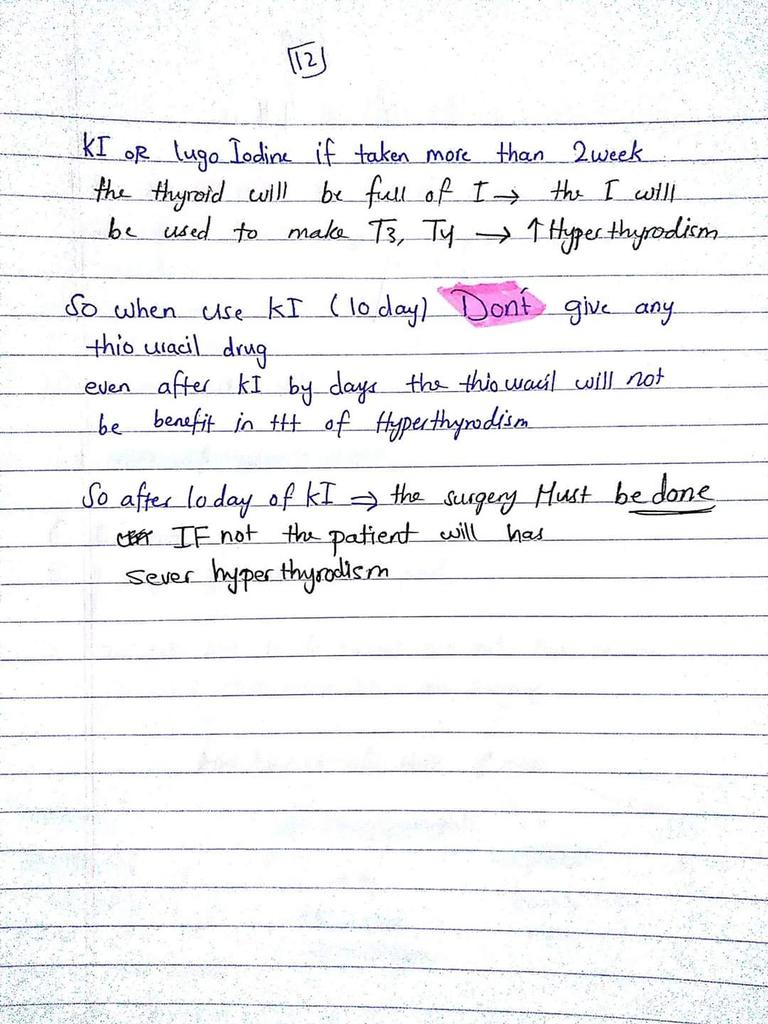 12
KI OR lugo Iodine if taken more than 2week
the thyroid will be full of I → the I will
be used to make T3, T4 → ↑ Hyperthyrodism
So when use KI (10 day) Don't give any
thiouracil drug
even after KI by days the thiouracil will not
be benefit in ttt of Hyperthyrodism
So after 10 day of KI ⇒ the surgery Must be done
IF not the patient will has
sever hyperthyrodism